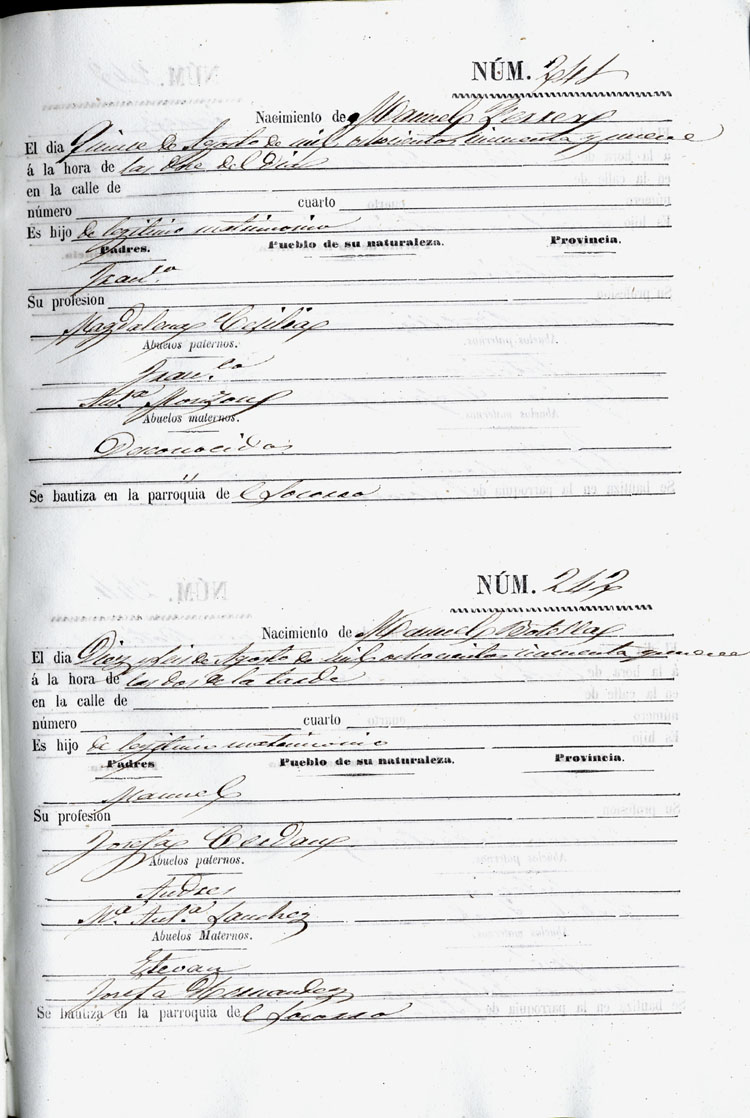 NÚM. 241
Nacimiento de Manuel Ferrer
El dia Quince de Agosto de mil ochocientos cincuenta y nueve
á la hora de las doce del dia
en la calle de
número cuarto
Es hijo de legitimo matrimonio
Padres. Pueblo de su naturaleza. Provincia.
Fran.co
Su profesion
Magdalena Cecilia
Abuelos paternos.
Fran.co
Ant.a Monzon
Abuelos maternos.
Desconocidos
Se bautiza en la parroquia de el Socorro
NÚM. 242
Nacimiento de Manuel Botella
El dia Diez y seis de Agosto de mil ochocientos cincuenta y nueve
á la hora de las dos de la tarde
en la calle de
número cuarto
Es hijo de legitimo matrimonio
Padres Pueblo de su naturaleza. Provincia.
Manuel
Su profesion
Josefa Cerdan
Abuelos paternos.
Andres
M.a Ant.a Sanchez
Abuelos Maternos.
Estevan
Josefa Hernandez
Se bautiza en la parroquia de el Socorro